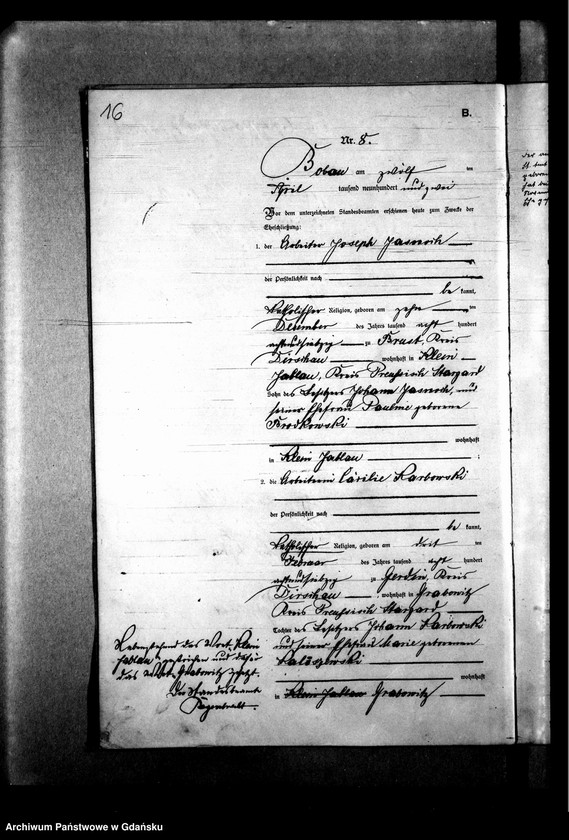 16
B.
Nr. 8.
Bobau am zwölf ten
April tausend neunhundert und zwei
Vor dem unterzeichneten Standesbeamten erschienen heute zum Zwecke der
Eheschließung:
1. der Arbeiter Joseph
der Persönlichkeit nach
be kannt,
katholischer Religion, geboren am zehn ten
Dezember des Jahres tausend acht hundert
achtundsiebzig zu Kreis
Dirschau wohnhaft in Klein
Jablau, Kreis Preußisch Stargard
Sohn des Besitzers Johann und
seiner Ehefrau Pauline geborene
Brodkowski
wohnhaft
in Klein Jablau ;
2. die Arbeiterin Cäcilie Karbowski
der Persönlichkeit nach
be kannt,
katholischer Religion, geboren am drit ten
Februar des Jahres tausend acht hundert
achtundsiebzig zu Gerdin, Kreis
Dirschau wohnhaft in Grabowitz
Kreis Preußisch Stargard
Tochter des Besitzers Johann Karbowski
und seiner Ehefrau Marie geborenen
Kaliszewski
wohnhaft
in Klein Jablau Grabowitz
Nebenstehend das Wort Klein
Jablau gestrichen und dafür
das Wort Grabowitz gesetzt.
Der Standesbeamte
Archiwum Państwowe w Gdańsku